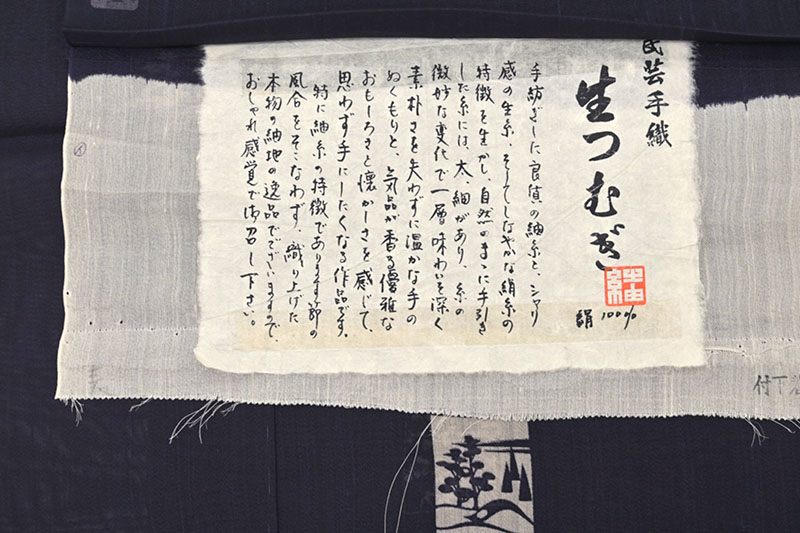 民芸手織
生つむぎ
生紬
絹100%
手紡ぎした良質の紬糸と、シャリ
感の生糸、そしてしなやかな絹糸の
特徴を生かし、自然のまゝに手引き
した糸には、太、細があり、糸の
微妙な変化で一層味わいを深く
素朴さを失わずに温かな手の
ぬくもりと、気品が香る優雅な
おもしろさと懐かしさを感じて、
思わず手にしたくなる作品です。
特に紬糸の特徴であります節の
風合をそこなわず、織り上げた
本物の紬地の逸品でございますので、
おしゃれ感覚で御召し下さい。
付下